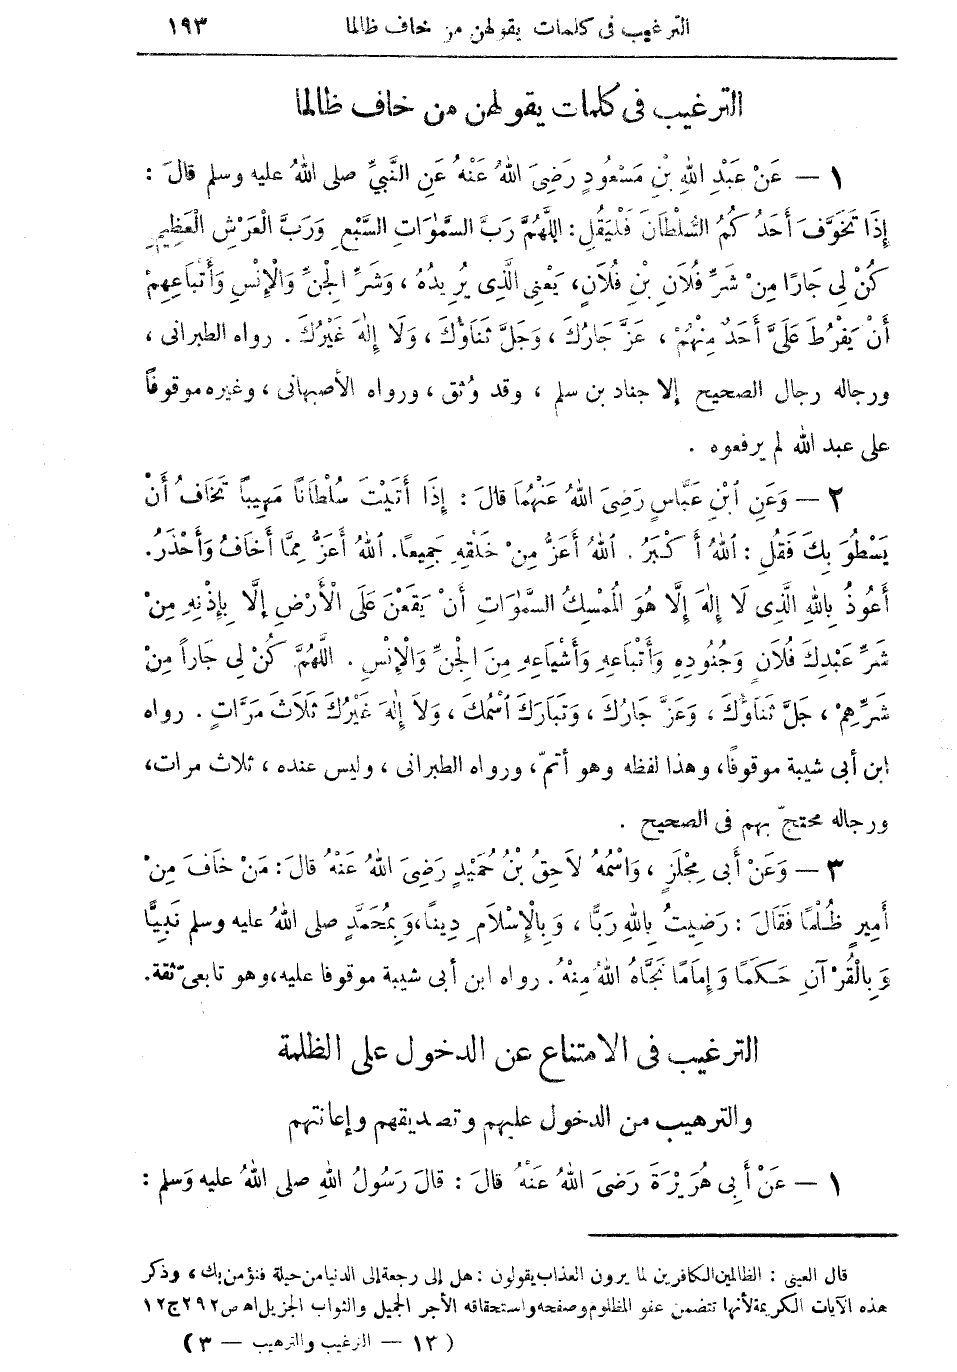 الترغيب فى كلمات يقولهن من خاف ظالما ١٩٣
الترغيب فى كلمات يقولهن من خاف ظالما
١ — عَنْ عَبْدِ اللهِ بْنِ مَسْعُودٍ رَضِىَ اللهُ عَنْهُ عَنِ النَّبِيِّ صلى اللهُ عليه وسلم قالَ :
إِذَا تَخَوَّفَ أَحَدُ كُمُ السُّلْطَانَ فَلْيَقُلِ : اللّهُمَّ رَبَّ السَّمٰوَاتِ السَّبْعِ وَرَبَّ الْعَرْشِ الْعَظِيمِ
كُنْ لِى جَارًا مِنْ شَرِّ فُلَانِ بْنِ فُلَانٍ، يَعْنِى الَّذِى يُرِيدُهُ ، وَشَرِّ الْجِنِّ وَالْإِنْسِ وَأَتْبَاعِهِمْ
أَنْ يَفْرُطَ عَلَىَّ أَحَدٌ مِنْهُمْ ، عَزَّ جَارُكَ ، وَجَلَّ ثَنَاؤُكَ ، وَلَا إِلٰهَ غَيْرُكَ . رواه الطبرانى ،
ورجاله رجال الصحيح إلا جناد بن سلم ، وقد وُثق ، ورواه الأصبهانى ، وغيره موقوفًا
على عبد الله لم يرفعوه .
٢ — وَعَنِ ابْنِ عَبَّاسٍ رَضِىَ اللهُ عَنْهُمَا قالَ : إِذَا أَتَيْتَ سُلْطَانًا مَهِيبًا تَخَافُ أَنْ
يَسْطُوَ بِكَ فَقُلِ : اللهُ أَ كْبَرُ . اللهُ أَعَزُّ مِنْ خَلْقِهِ جَمِيعًا. اللهُ أَعَزُّ مِمَّا أَخَافُ وَأَحْذَرُ.
أَعُوذُ بِاللهِ الَّذِى لَا إِلٰهَ إِلَّا هُوَ الْمُمْسِكُ السَّمٰوَاتِ أَنْ يَقَعْنَ عَلَى الْأَرْضِ إِلَّا بِإِذْنِهِ مِنْ
شَرِّ عَبْدِكَ فُلَانٍ وَجُنُودِهِ وَأَتْبَاعِهِ وَأَشْيَاعِهِ مِنَ الْجِنِّ وَالْإِنْسِ . اللّهُمَّ كُنْ لِى جَاراً مِنْ
شَرِّهِمْ ، جَلَّ ثَنَاؤُكَ ، وَعَزَّ جَارُكَ ، وَتَبَارَكَ اسْمُكَ ، وَلَا إِلٰهَ غَيْرُكَ ثَلَاثَ مَرَّاتٍ . رواه
ابن أبى شيبة موقوفًا، وهذا لفظه وهو أتمّ، ورواه الطبرانى ، وليس عنده ، ثلاث مرات،
ورجاله محتجّ بهم فى الصحيح .
٣ — وَعَنْ أَبِى مِجْلَزٍ ، وَاسْمُهُ لَاحِقُ بْنُ حُمَيْدٍ رَضِىَ اللهُ عَنْهُ قالَ : مَنْ خَافَ مِنْ
أَمِيرٍ ظُلْمًا فَقَالَ : رَضِيتُ بِاللهِ رَبًّا ، وَبِالْإِسْلَامِ دِينًا، وَبِمُحَمَّدٍ صلى اللهُ عليه وسلم نَبِيًّا
وَبِالْقُرْآنِ حَكَمًا وَإِمَامًا نَجَّاهُ اللهُ مِنْهُ . رواه ابن أبى شيبة موقوفا عليه، وهو تابعىّ ثقة.
الترغيب فى الامتناع عن الدخول على الظلمة
والترهيب من الدخول عليهم وتصديقهم وإعانتهم
١ — عَنْ أَبِى هُرَيْرَةَ رَضِىَ اللهُ عَنْهُ قالَ : قالَ رَسُولُ اللهِ صلى اللهُ عليه وَسلم :
قال العينى : الظالمين الكافرين لما يرون العذاب يقولون : هل إلى رجعة إلى الدنيا من حيلة فنؤمن بك ، وذكر
هذه الآيات الكريمة لأنها تتضمن عفو المظلوم وصفحه واستحقاقه الأجر الجميل والثواب الجزيل اهـ ص ٢٩٢ ج ١٢
( ١٣ — الترغيب والترهيب — ٣ )